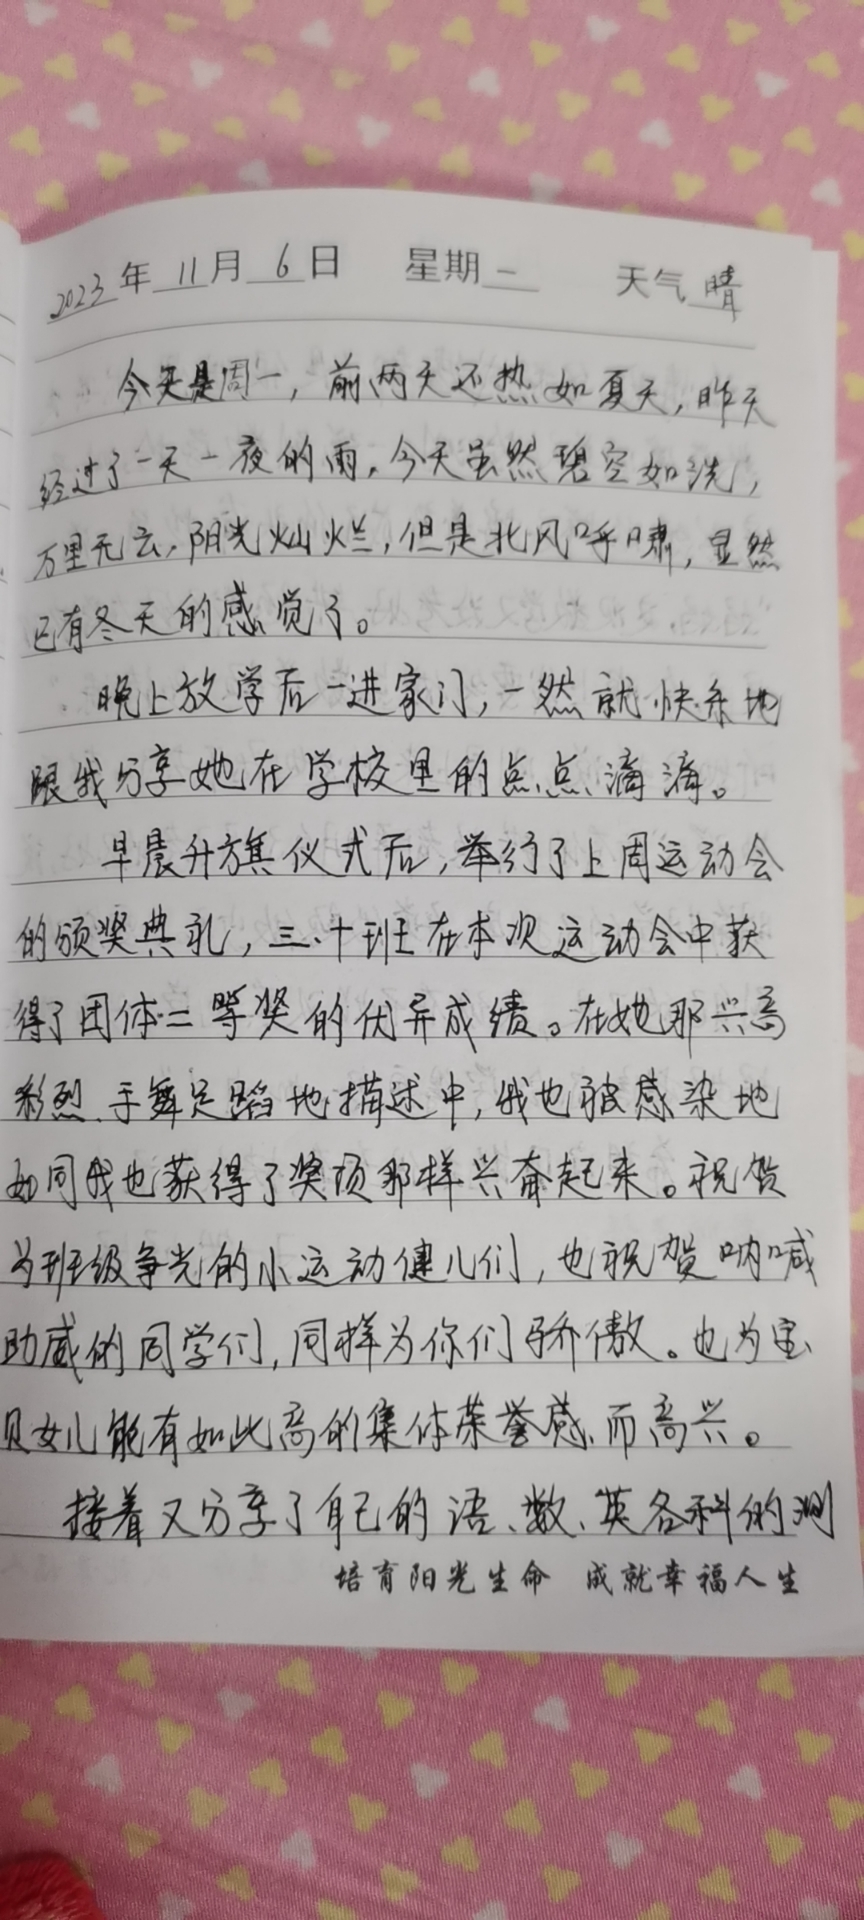 2023年 11月 6日 星期一 天气 晴
今天是周一，前两天还热如夏天，昨天
经过了一天一夜的雨，今天虽然碧空如洗，
万里无云，阳光灿烂，但是北风呼啸，显然
已有冬天的感觉了。
晚上放学后一进家门，一然就快乐地
跟我分享她在学校里的点点滴滴。
早晨升旗仪式后，举行了上周运动会
的颁奖典礼，三、十班在本次运动会中获
得了团体二等奖的优异成绩。在她那兴高
彩烈、手舞足蹈地描述中，我也被感染地
如同我也获得了奖项那样兴奋起来。祝贺
为班级争光的小运动健儿们，也祝贺呐喊
助威的同学们，同样为你们骄傲。也为宝
贝女儿能有如此高的集体荣誉感而高兴。
接着又分享了自己的语、数、英各科的测
培育阳光生命 成就幸福人生